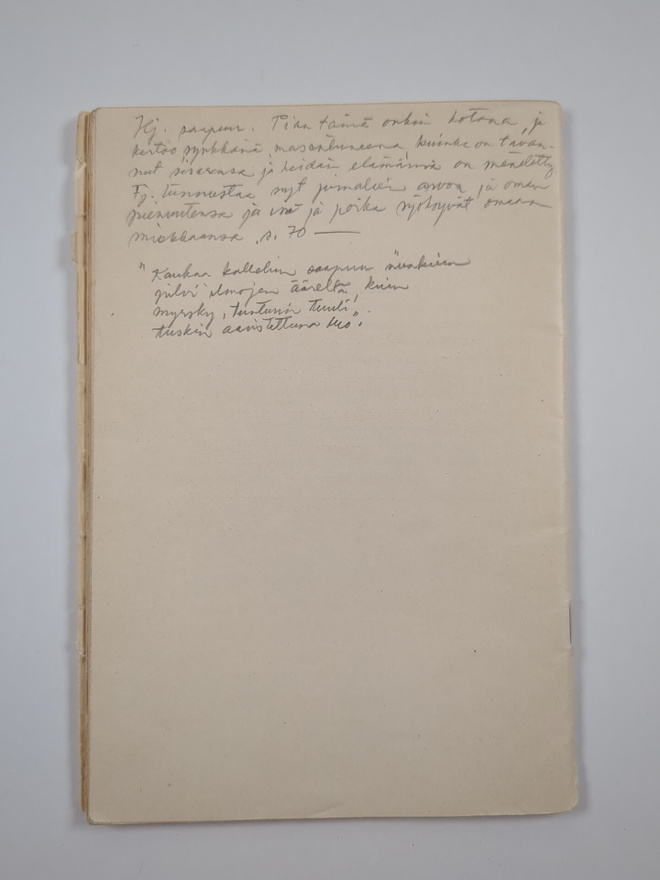 Hj. saapuu. Pian tämä onkin kotona, ja
kertoo synkkänä, masentuneena, kuinka on tavan-
nut sisarensa ja heidän elämänsä on menetetty
Fj. tunnustaa nyt jumalien arvon ja oman
pienuutensa ja isä ja poika syöksyvät omaan
miekkaansa, s. 70 —
"Kaukaa kalloliin saapuu
pilvi ilmojen ääreltä, kuin
myrsky, tunturin tuuli,
tuskin aavistettuna tuo."